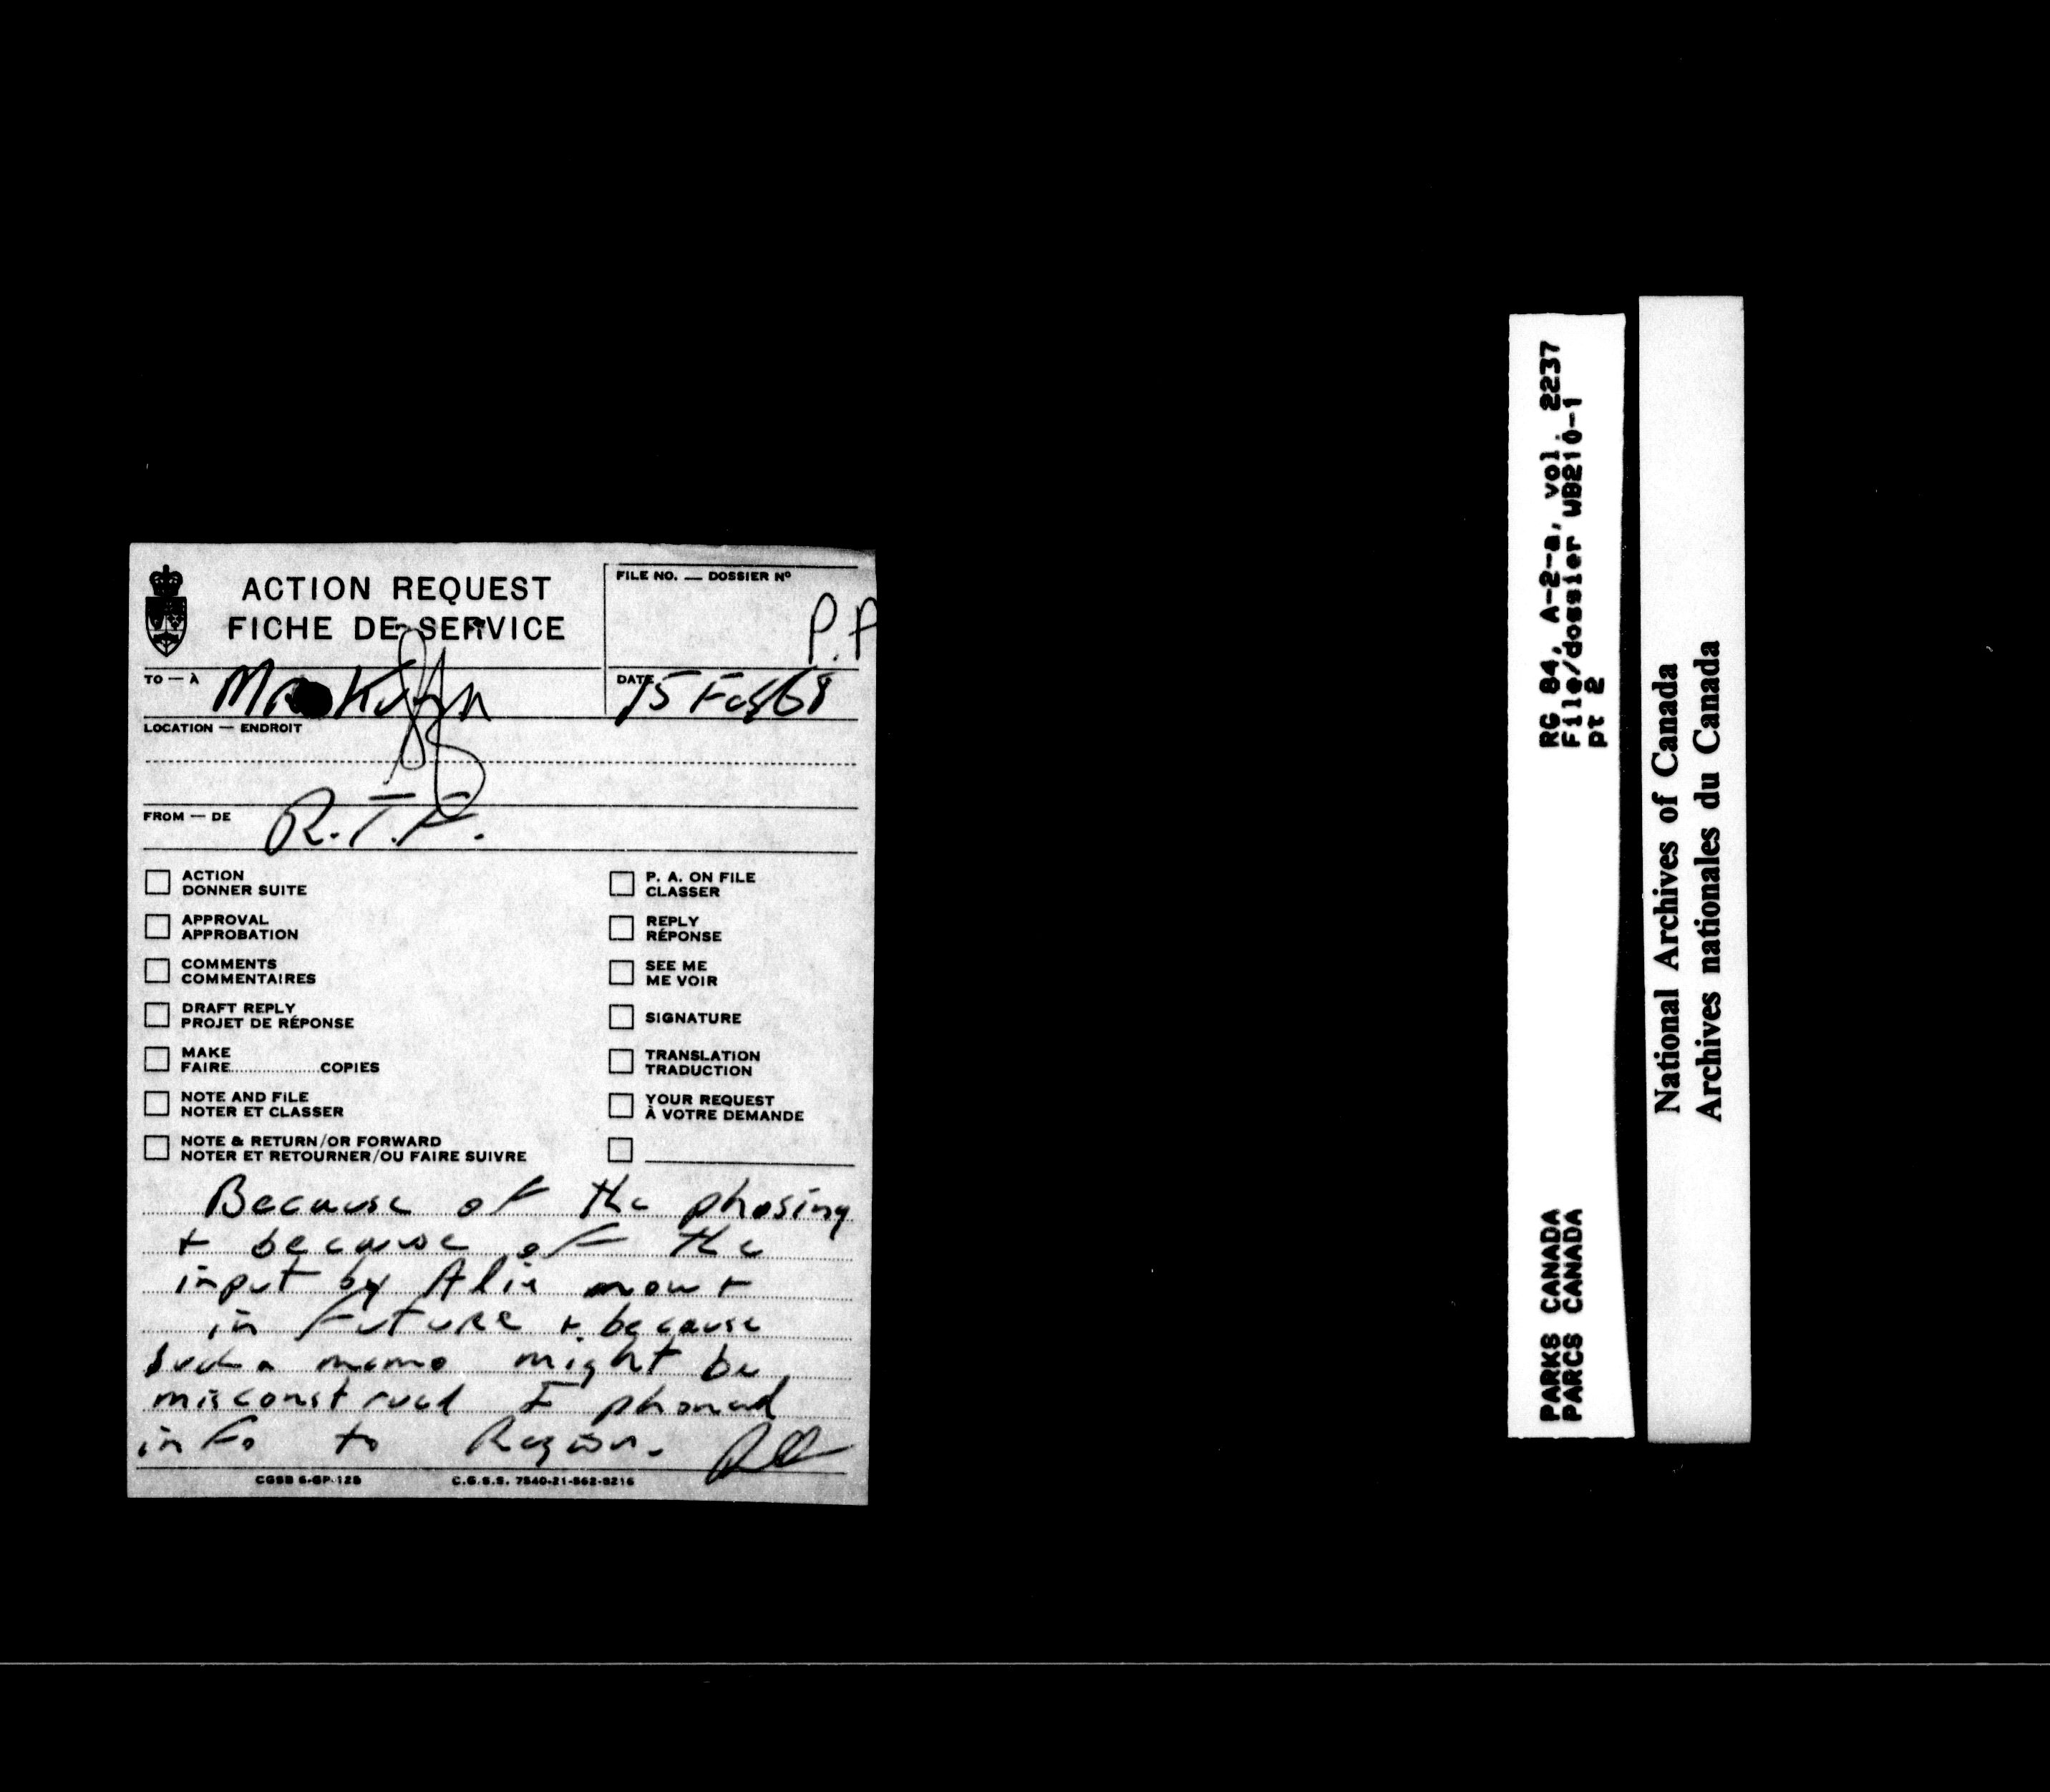 ACTION REQUEST
FICHE DE SERVICE
FILE NO. — DOSSIER Nº
P.A
TO — À
Mr
DATE
15 Feb/68
LOCATION — ENDROIT
FROM — DE
R.T.F.
ACTION
DONNER SUITE
APPROVAL
APPROBATION
COMMENTS
COMMENTAIRES
DRAFT REPLY
PROJET DE RÉPONSE
MAKE
FAIRE..................COPIES
NOTE AND FILE
NOTER ET CLASSER
NOTE & RETURN/OR FORWARD
NOTER ET RETOURNER/OU FAIRE SUIVRE
P. A. ON FILE
CLASSER
REPLY
RÉPONSE
SEE ME
ME VOIR
SIGNATURE
TRANSLATION
TRADUCTION
YOUR REQUEST
À VOTRE DEMANDE
Because of the phasing
+ because of the
input by now +
in future + because
such a memo might be
misconstrued I phoned
info to Region.
CGSB 6-GP-125
C.G.S.S. 7540-21-862-5216
RG 84, A-2-a, vol. 2237
File/dossier WB210-1
pt 2
PARKS CANADA
PARCS CANADA
National Archives of Canada
Archives nationales du Canada